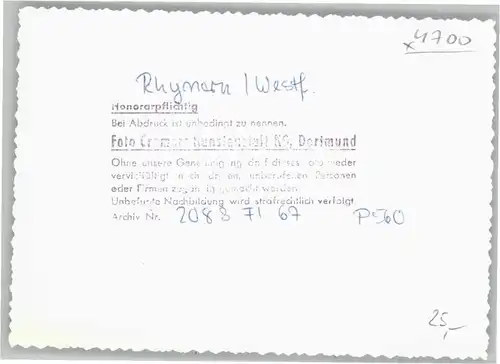 x4700
Rhynern / Westf.
Honorarpflichtig
Bei Abdruck ist unbedingt zu nennen.
Foto Cramers Kunstanstalt KG, Dortmund
Ohne unsere Genehmigung darf dieses Foto weder
vervielfältigt noch dritten, unberufenen Personen
oder Firmen zugängig gemacht werden.
Unbefugte Nachbildung wird strafrechtlich verfolgt
Archiv Nr. 2083 71 67 P-560
25,-